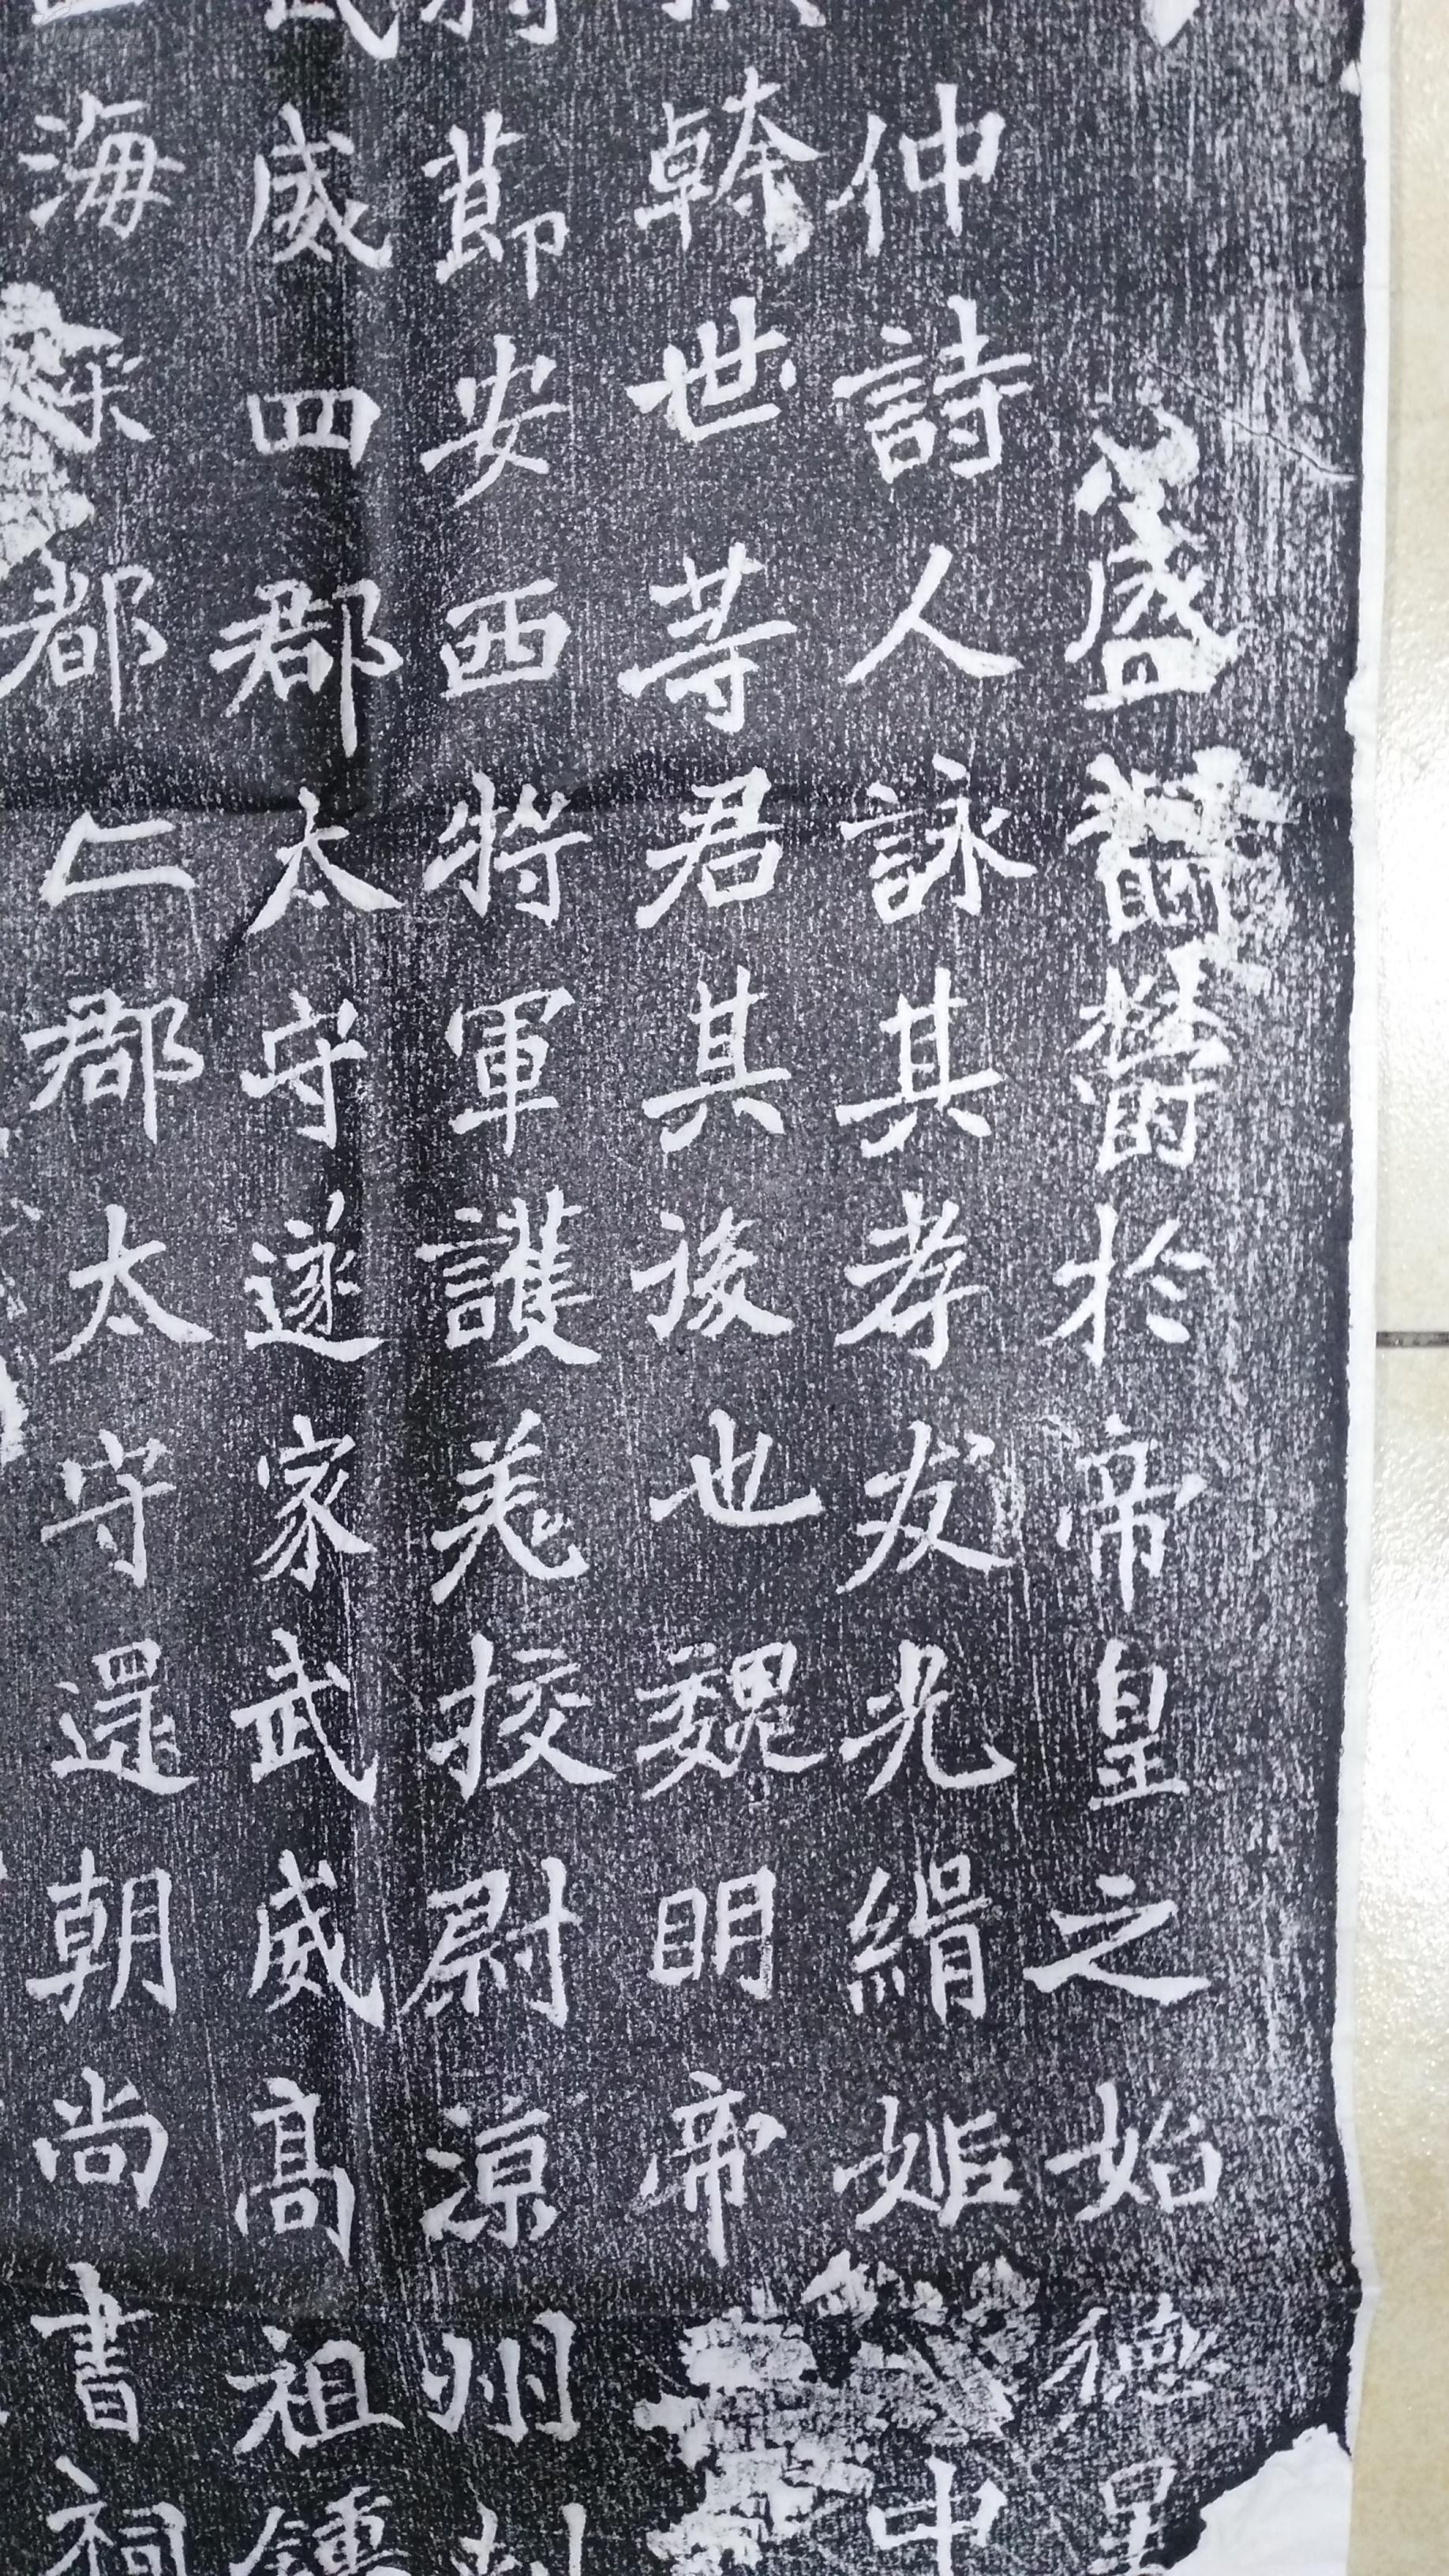 盛蕃鬱於帝皇之始德
仲詩人詠其孝友光緝姬中
幹世等君其後也魏明帝
節安西將軍護羌校尉涼州
威四郡太守遂家武威高祖鍾
海樂都二郡太守還朝尚書祠